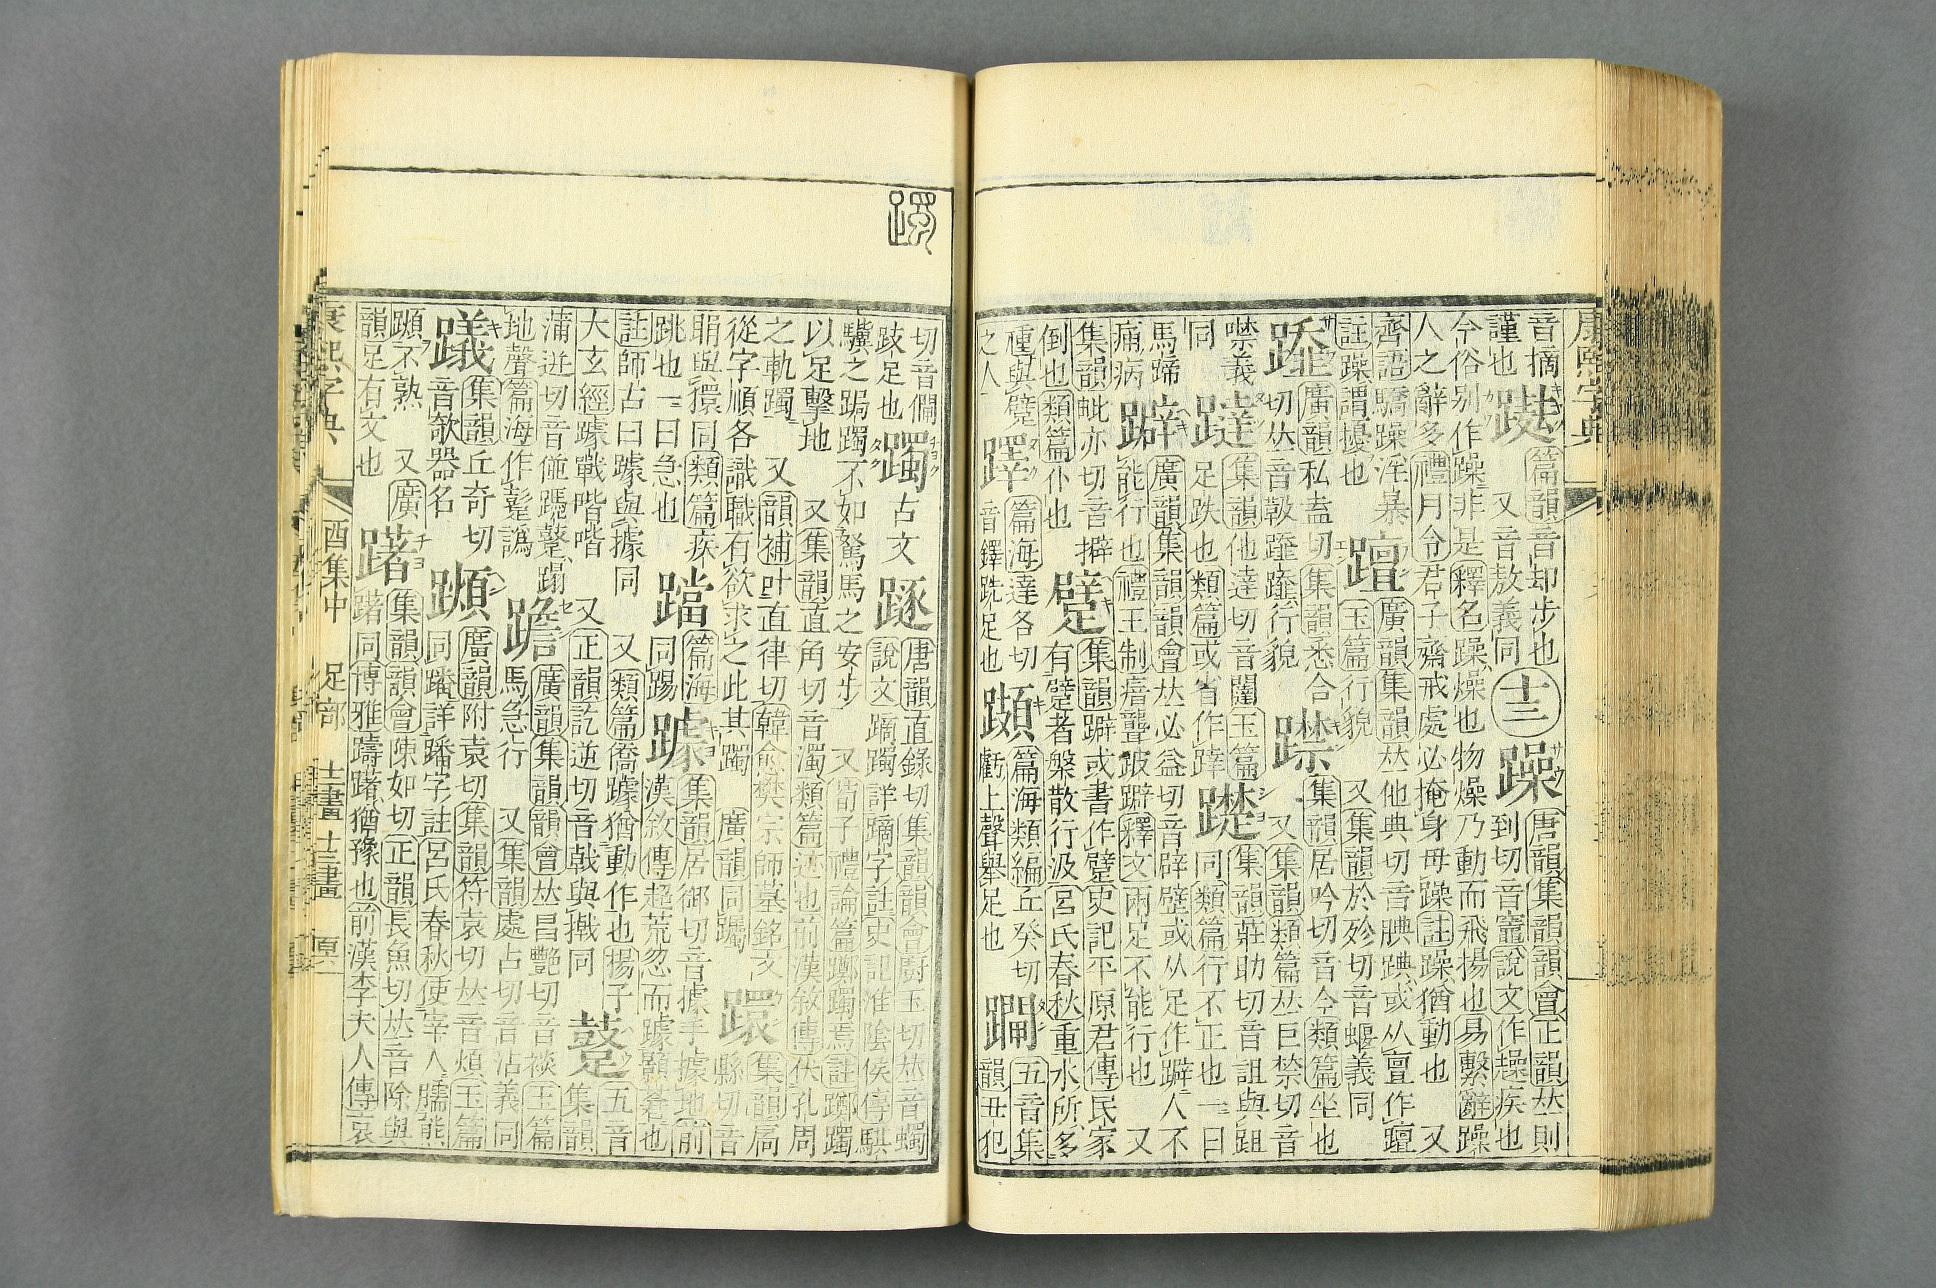 康熙字典
音摘
謹也
䟻
篇韻音却步也
又音敖義同
十三
躁
唐韻集韻韻會正韻𠀤則
到切音竈說文作趮疾也
釋名躁燥也物燥乃動而飛揚也易繫辭躁
今俗別作躁非是
人之辭多禮月令君子齋戒處必掩身毋躁註躁猶動也 又
齊語驕躁淫暴
註躁謂擾也
䡀
廣韻集韻𠀤他典切音腆䠄或从亶作躔
玉篇行貌 又集韻於殄切音蝘義同
廣韻私盍切集韻悉合
切𠀤音靸𨅓𨆡行貌
集韻居吟切音今類篇坐也
又集韻類篇𠀤巨禁切音
噤義
同
躂
集韻他達切音闥玉篇
足跌也類篇或省作𨒪
集韻莊助切音詛與跙
同類篇行不正也一曰
馬蹄
痛病
躃
廣韻集韻韻會𠀤必益切音辟躄或从足作躃人不
能行也禮王制瘖聾跛躃釋文兩足不能行也 又
集韻毗亦切音擗
倒也類篇仆也
躄
集韻躃或書作躄史記平原君傳民家
有躄者槃散行汲呂氏春秋重水所多
尰與躄
之人
篇海達各切
音鐸跣足也
篇海類編丘癸切
虧上聲舉足也
五音集
韻丑犯
躅
切音僴
跂足也
躅
古文
䠱
唐韻直錄切集韻韻會厨玉切𠀤音蠋
說文蹢躅詳蹢字註史記淮隂侯傳騏
驥之跼躅不如駑馬之安步 又荀子禮論篇躑躅焉註躑躅
以足擊地 又集韻直角切音濁類篇迹也前漢敘傳伏孔周
之軌躅 又韻補叶直律切韓愈樊宗師墓銘文
從字順各識職有欲求之此其躅 廣韻同躅
𨆈
集韻扃
縣切音
睊與獧同類篇疾
跳也一曰急也
𨆉
篇海
同踢
躆
集韻居御切音據手據地前
漢敘傳超荒忽而躆顥蒼也
註師古曰躆與據同 又類篇僑躆猶動作也揚子
太玄經躆戰喈喈 又正韻訖逆切音戟與撠同
𨆊
五音
集韻
蒲迸切音偋踂躄蹋
地聲篇海作躄譌
𨅹
廣韻集韻韻會𠀤昌豔切音襜玉篇
馬急行 又集韻處占切音沾義同
䡋
集韻丘奇切
音欹器名
蹞
廣韻附袁切集韻符袁切𠀤音煩玉篇
同蹯詳蹯字註呂氏春秋使宰人臑熊
蹞不熟 又廣
韻足有文也
躇
集韻韻會陳如切正韻長魚切𠀤音除與
躇同博雅躊躇猶豫也前漢李夫人傳哀
康熙字典 酉集中 足部 十二畫 十三畫